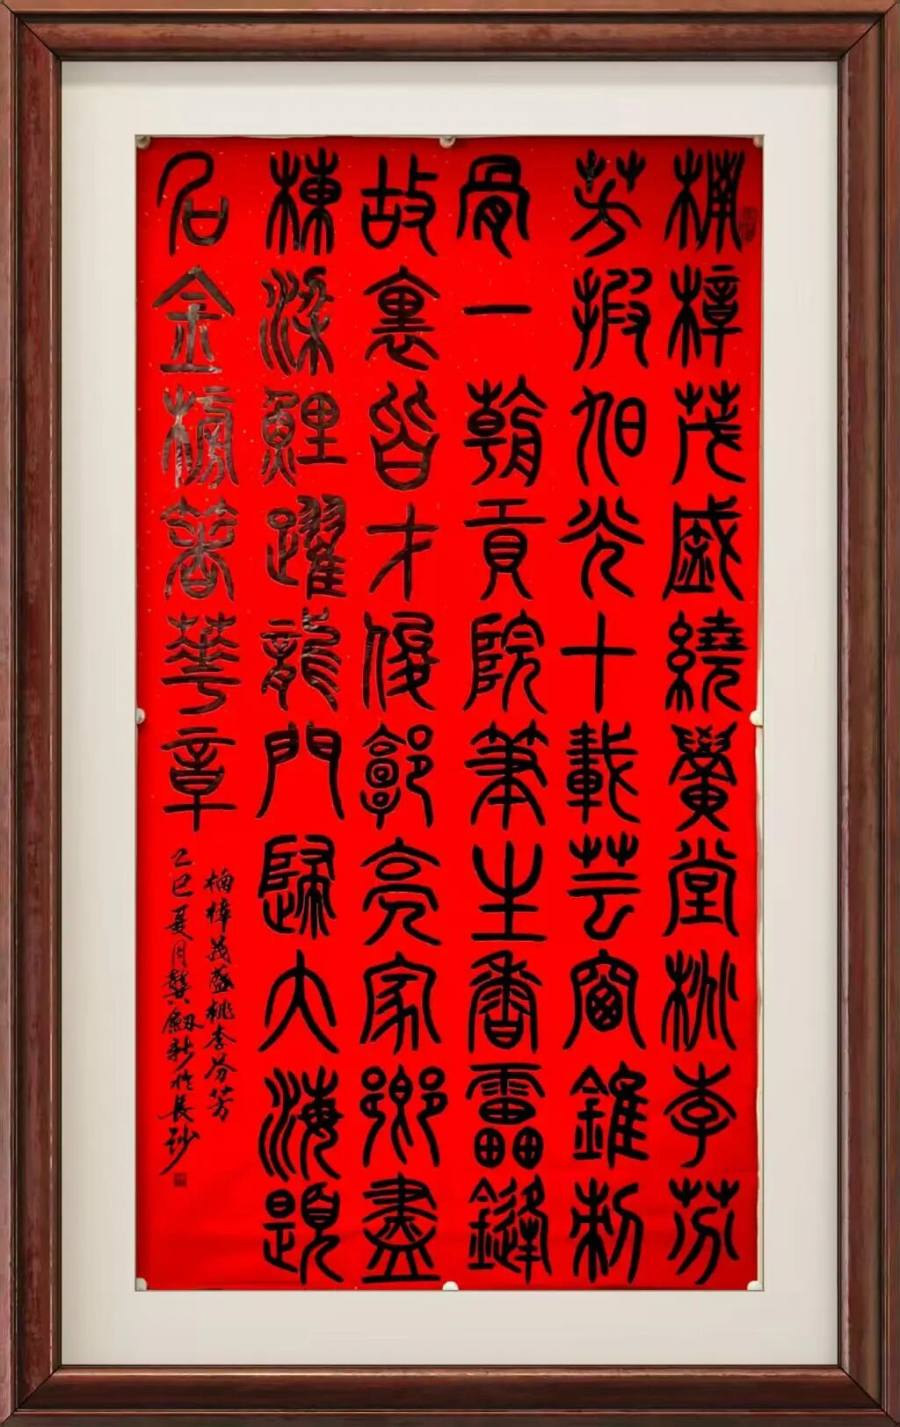 楠樟茂盛繞黌堂桃李芬
芳旭光十載芸窗錐刺
骨一朝貢院筆生香雷鏠
故裏皆才俊郭亮家鄉盡
棟梁鯉躍龍門歸大海題
名金榜著華章
楠樟茂盛桃李芬芳
乙巳夏月龔劔新於長沙